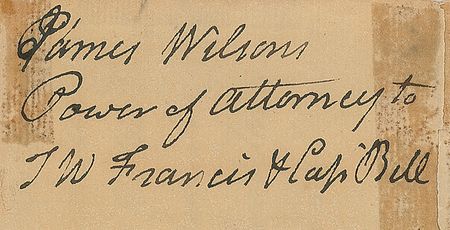 James Wilsons
Power of Attorney to
T W Francis & Cap. Bell